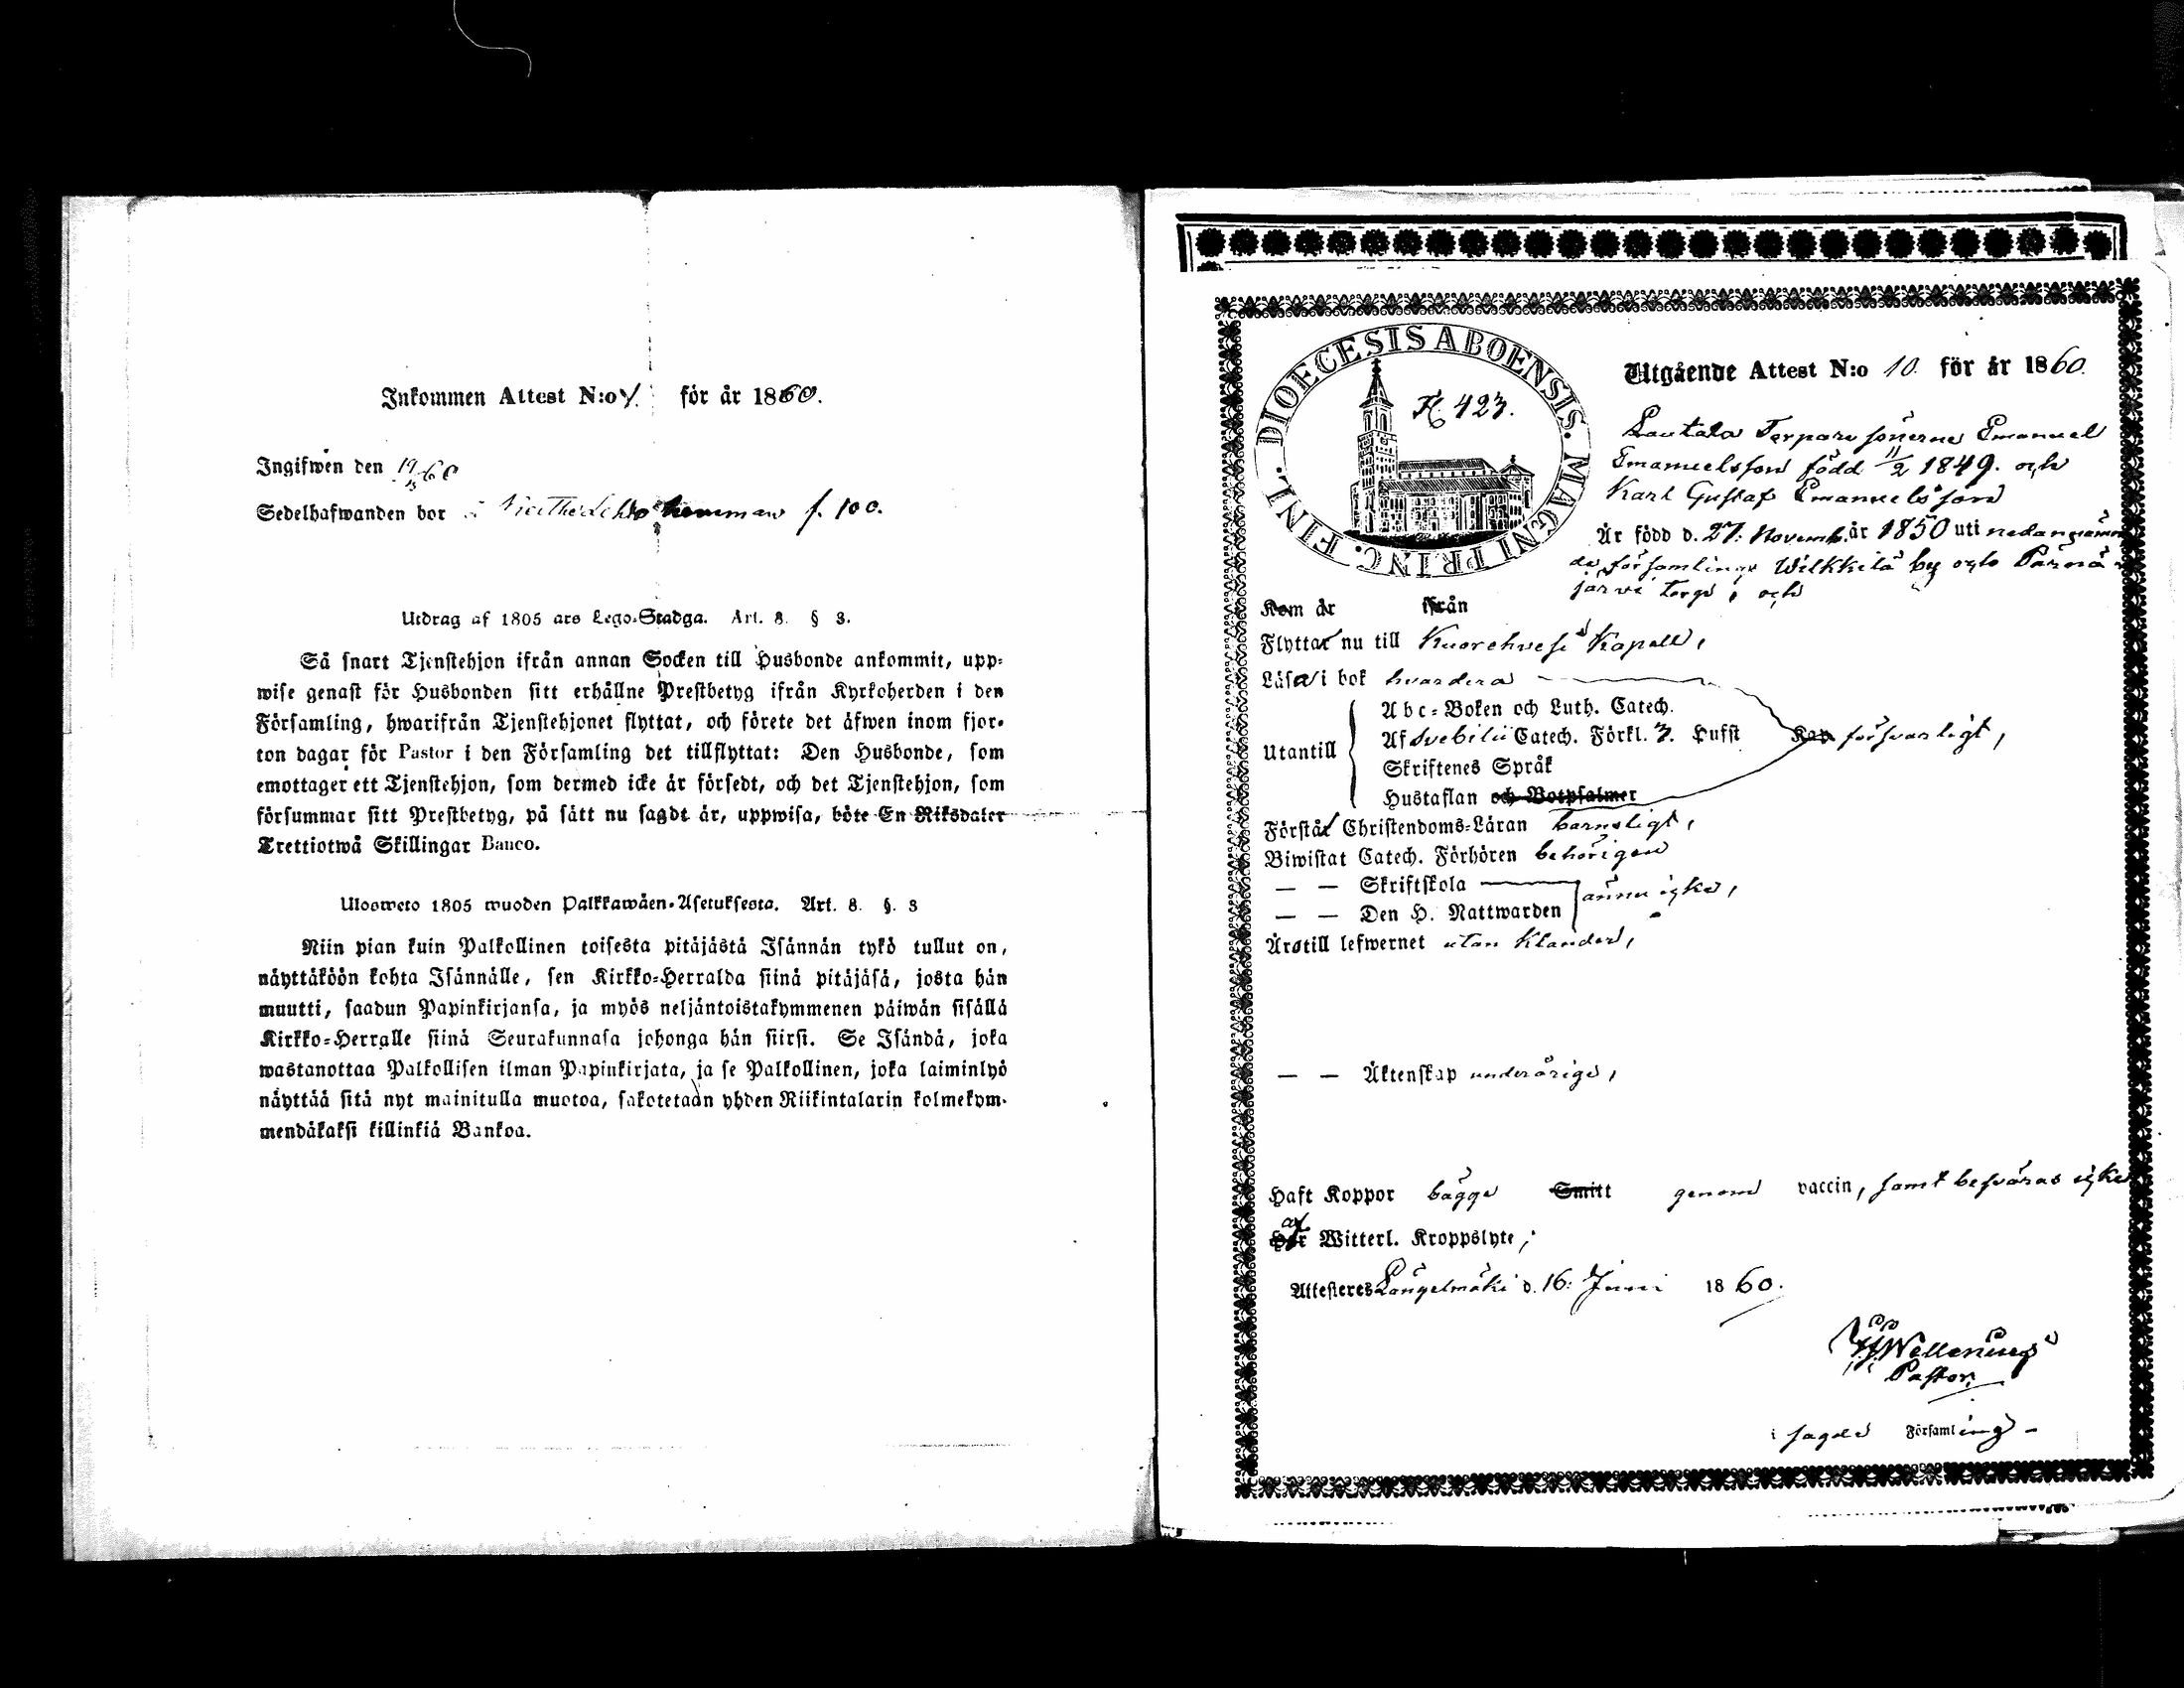 Inkommen Attest N:o 4. för år 1860.
Ingifwen den 19 60
Sedelhafwanden bor f. 100.
Utdrag af 1805 års Lego-Stadga. Art. 8. § 3.
Så snart Tjenstehjon ifrån annan Socken till Husbonde ankommit, upp-
wise genast för Husbonden sitt erhållne Prestbetyg ifrån Kyrkoherden i den
Församling, hwarifrån Tjenstehjonet flyttat, och förete det äfwen inom fjor-
ton dagar för Pastor i den Församling det tillflyttat: Den Husbonde, som
emottager ett Tjenstehjon, som dermed icke är försedt, och det Tjenstehjon, som
försummar sitt Prestbetyg, på sätt nu sagdt är, uppwisa, böte En Riksdaler
Trettiotwå Skillingar Banco.
Ulosweto 1805 wuoden Palkkawäen-Asetuksesta. Art. 8. §. 3
Niin pian kuin Palkollinen toisesta pitäjästä Isännän tykö tullut on,
näyttäköön kohta Isännälle, sen Kirkko-Herralda siinä pitäjäsä, josta hän
muutti, saadun Papinkirjansa, ja myös neljäntoistakymmenen päiwän sisällä
Kirkko-Herralle siinä Seurakunnasa johonga hän siirsi. Se Isändä, joka
wastanottaa Palkollisen ilman Papinkirjata, ja se Palkollinen, joka laiminlyö
näyttää sitä nyt mainitulla muotoa, sakotetaan yhden Riikintalarin kolmekym-
mendäkaksi killinkiä Bankoa.
DIOECESIS ABOENSIS. MAGNI PRINC. FINL.
K. 423.
Utgående Attest N:o 10. för år 1860.
Lautala Torpare sönerne Emanuel
Emanuelsson född 11/2 1849. och
Karl Gustaf Emanuelsson
Är född d. 27: Novemb. år 1850 uti nedannämn
de församlings Wilkkilä by och Pärnä
järvi torp, och
Kom år ifrån
Flyttar nu till Kuorehvesi Kapell,
Läsa i bok hvardera
Utantill
Abc-Boken och Luth. Catech.
Af Svebilii Catech. Förkl. 3. Hufst Kap försvarligt,
Skriftenes Språk
Hustaflan och Botpsalmer
Förstår Christendoms-Läran barnsligt,
Biwistat Catech. Förhören behörigen
— — Skriftskola
— — Den H. Nattwarden ännu icke,
Äro till lefwernet utan klander,
— — Äktenskap underårige,
Haft Koppor bägge Smitt genom vaccin, samt besväras icke
Har af Witterl. Kroppslyte,
Attesteres Längelmäki d. 16: Juni 1860.
Wellenius
Pastor
i sagde Församling -